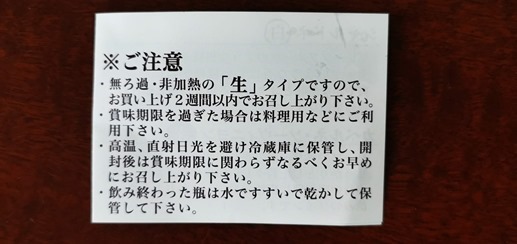 ※ご注意
・無ろ過・非加熱の「生」タイプですので、
お買い上げ２週間以内でお召し上がり下さい。
・賞味期限を過ぎた場合は料理用などにご利
用下さい。
・高温、直射日光を避け冷蔵庫に保管し、開
封後は賞味期限に関わらずなるべくお早め
にお召し上がり下さい。
・飲み終わった瓶は水ですすいで乾かして保
管して下さい。